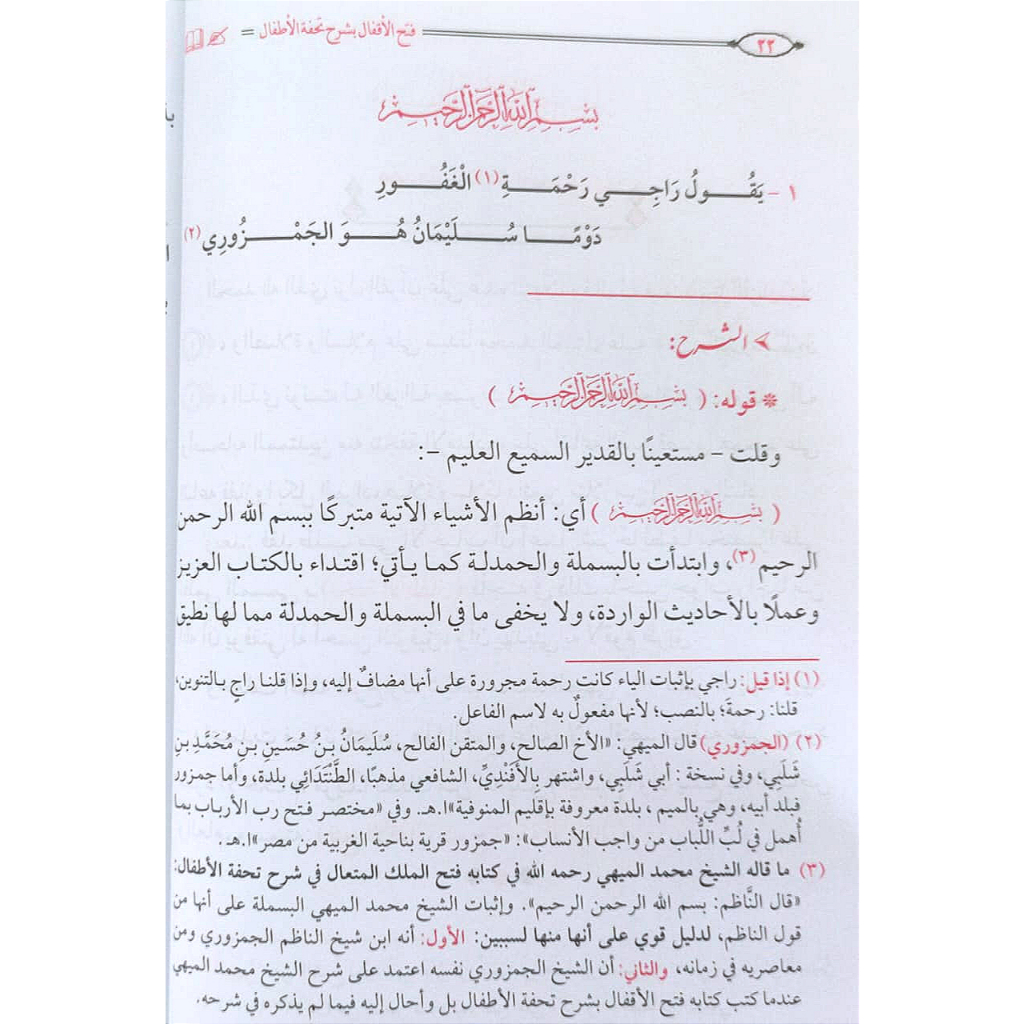 ٢٢ فتح الأقفال بشرح تحفة الأطفال
بسم الله الرحمن الرحيم
١ - يَقُـولُ رَاجِـي رَحْمَـةِ(١) الْغَفُـورِ
دَوْمًـا سُـلَيْمَانُ هُـوَ الجَمْـزُورِي(٢)
الشرح:
* قوله: ( بسم الله الرحمن الرحيم )
وقلت - مستعينًا بالقدير السميع العليم -:
( بسم الله الرحمن الرحيم ) أي: أنظم الأشياء الآتية متبركًا ببسم الله الرحمن
الرحيم(٣)، وابتدأت بالبسملة والحمدلة كما يأتي؛ اقتداء بالكتاب العزيز
وعملًا بالأحاديث الواردة، ولا يخفى ما في البسملة والحمدلة مما لها نطيق
(١) إذا قيل: راجي بإثبات الياء كانت رحمة مجرورة على أنها مضافٌ إليه، وإذا قلنا راجٍ بالتنوين،
قلنا: رحمةَ؛ بالنصب؛ لأنها مفعولٌ به لاسم الفاعل.
(٢) (الجمزوري) قال الميهي: «الأخ الصالح، والمتقن الفالح، سُلَيمَانُ بنُ حُسَينِ بنِ مُحَمَّدِ بنِ
شَلَبِي، وفي نسخة : أبي شَلَبِي، واشتهر بِالأَفَنْدِيِّ، الشافعي مذهبًا، الطَّنْتَدَائِي بلدة، وأما جمزور
فبلد أبيه، وهي بالميم ، بلدة معروفة بإقليم المنوفية»ا.هـ. وفي «مختصر فتح رب الأرباب بما
أُهمل في لُبِّ اللُّباب من واجب الأنساب»: «جمزور قرية بناحية الغربية من مصر»ا.هـ.
(٣) ما قاله الشيخ محمد الميهي رحمه الله في كتابه فتح الملك المتعال في شرح تحفة الأطفال:
«قال النَّاظم: بسم الله الرحمن الرحيم». وإثبات الشيخ محمد الميهي البسملة على أنها من
قول الناظم، لدليل قوي على أنها منها لسببين: الأول: أنه ابن شيخ الناظم الجمزوري ومن
معاصريه في زمانه، والثاني: أن الشيخ الجمزوري نفسه اعتمد على شرح الشيخ محمد الميهي
عندما كتب كتابه فتح الأقفال بشرح تحفة الأطفال بل وأحال إليه فيما لم يذكره في شرحه.